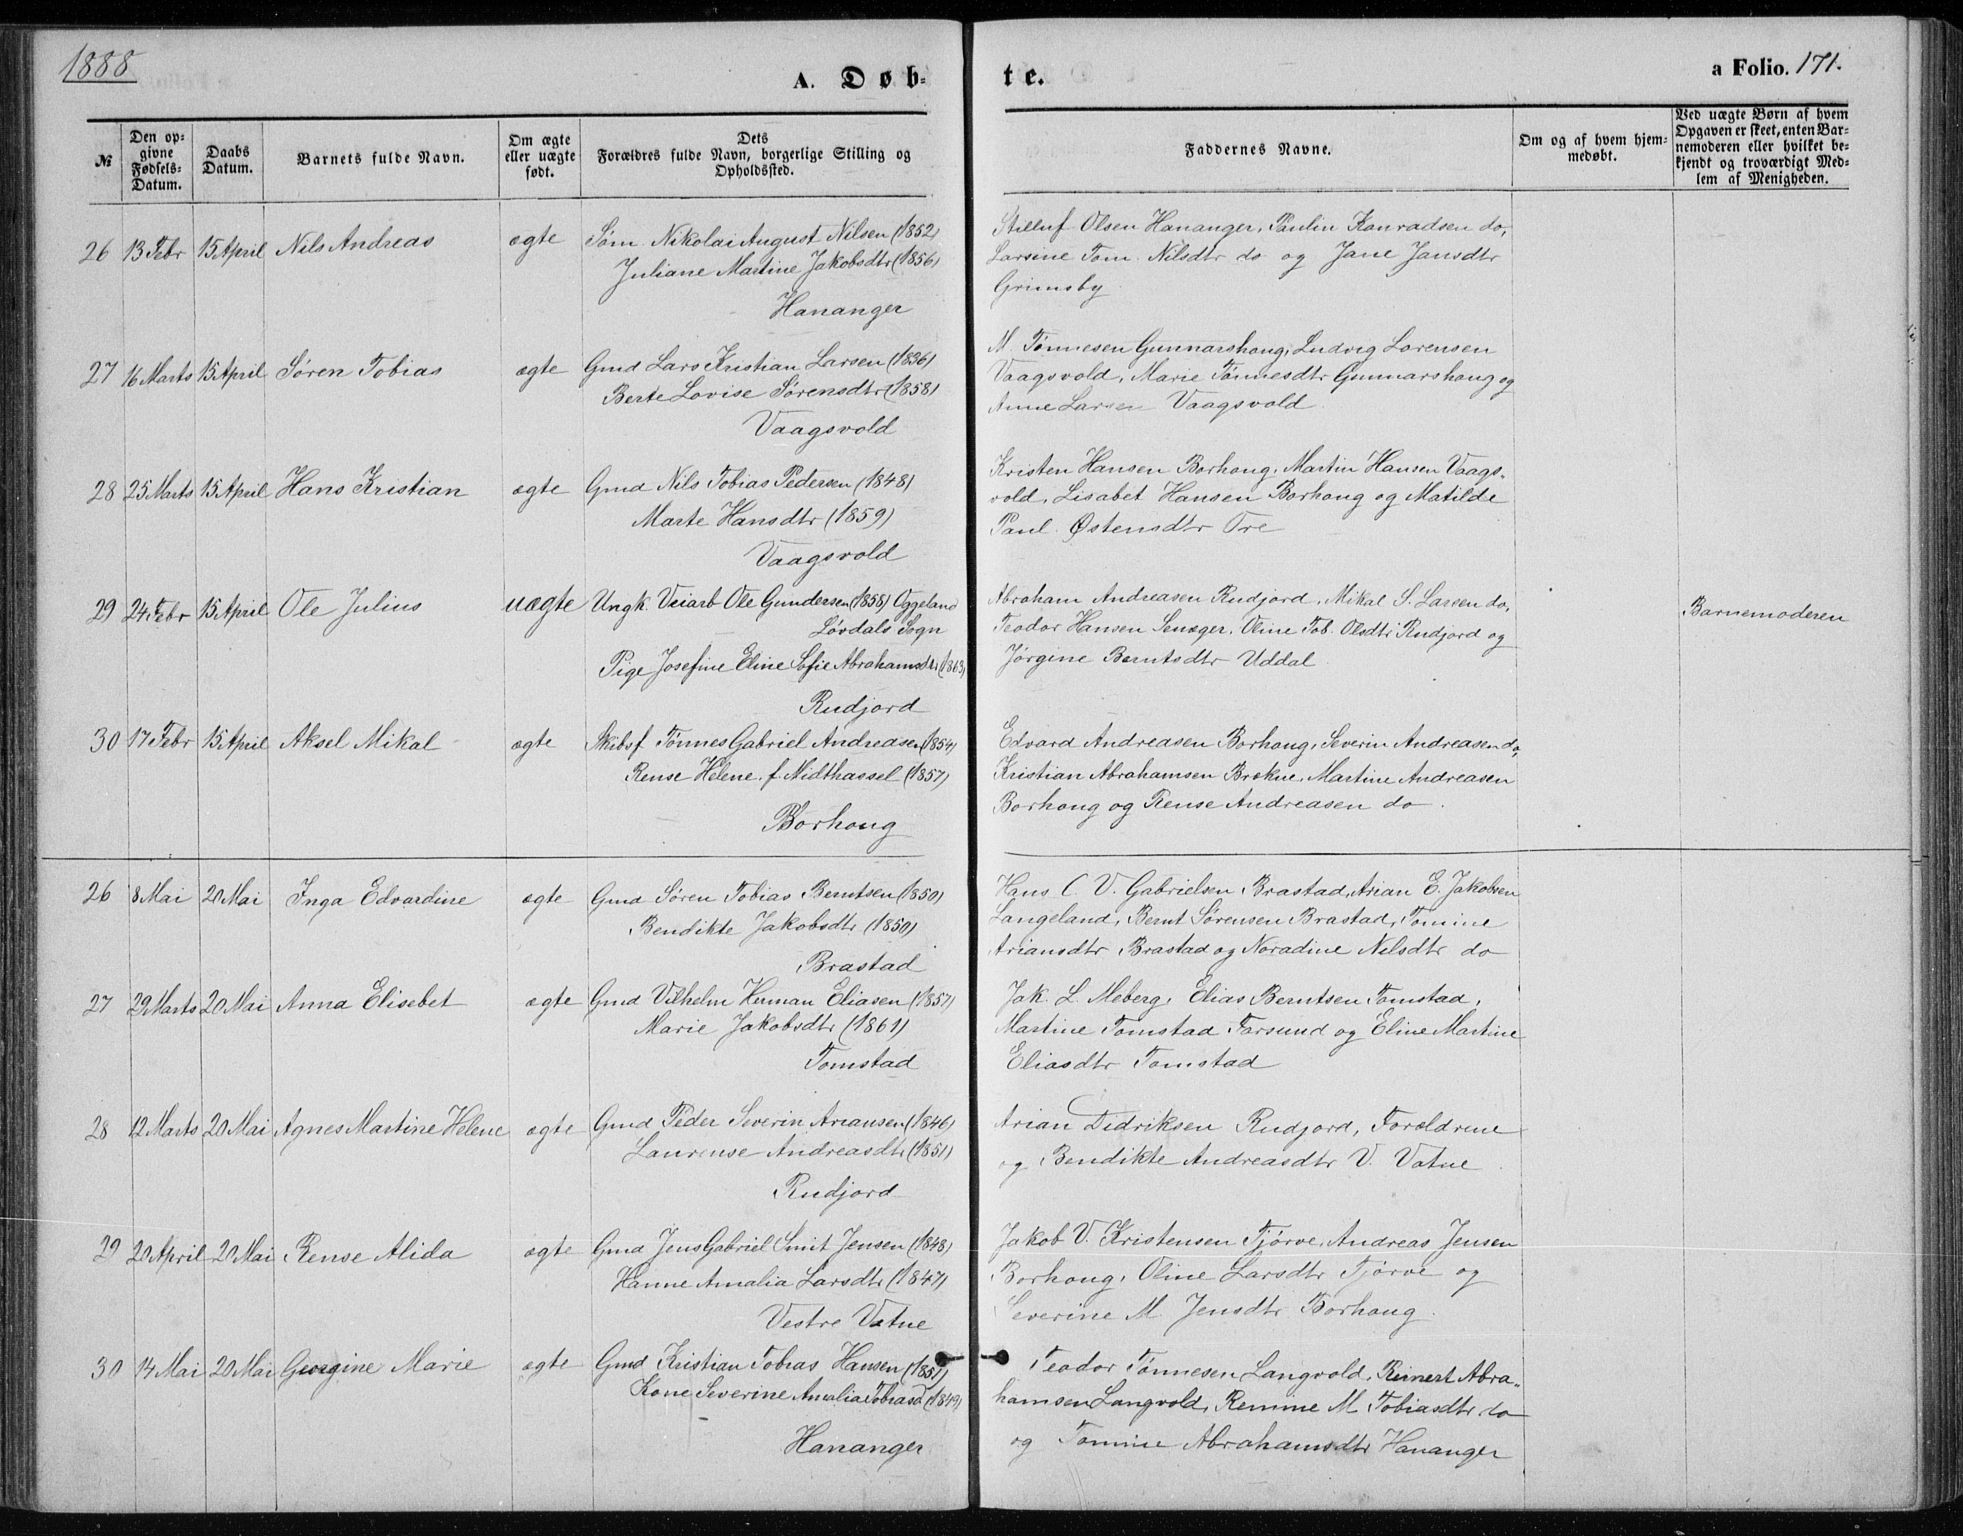 1888
A. Døb-
te.
a Folio. 171.
№
Den op-
givne
Fødsels-
Datum.
Daabs
Datum.
Barnets fulde Navn.
Om ægte
eller uægte
født.
Dets
Forældres fulde Navn, borgerlige Stilling og
Opholdssted.
Faddernes Navne.
Om og af hvem hjem-
medøbt.
Ved uægte Børn af hvem
Opgaven er skeet, enten Bar-
nemoderen eller hvilket be-
kjendt og troværdigt Med-
lem af Menigheden.
26 13 Febr 15 April Nils Andreas ægte Søm. Nikolai August Nilsen (1852)
Juliane Martine Jakobsdtr (1856)
Hananger
Olsen Hananger, Paulin Konradsen do,
Larsine Tom. Nilsdtr do og Jane Jansdtr
Grimsby
27 16 Marts 15 April Søren Tobias ægte Gmd Lars Kristian Larsen (1836)
Berte Lovise Sørensdtr (1858)
Vaagsvold
M. Tønnesen Gunnarshaug, Ludvig Lorensen
Vaagsvold, Marie Tønnesdtr Gunnarshaug og
Anne Larsen Vaagsvold
28 25 Marts 15 April Hans Kristian ægte Gmd Nils Tobias Pedersen (1848)
Marte Hansdtr (1859)
Vaagsvold
Kristen Hansen Borhaug, Martin Hansen Vaags-
vold, Lisabet Hansen Borhaug og Matilde
Paul. Østensdtr Ore
29 24 Febr 15 April Ole Julius uægte Ungk. Veiarb Ole Gundersen (1858) Oggeland
Løvdals Sogn
Pige Josefine Eline Sofie Abrahamsdtr (1863)
Rudjord
Abraham Andreasen Rudjord, Mikal S. Larsen do,
Teodor Hansen Senæger, Oline Tob. Olsdtr Rudjord og
Jørgine Berntsdtr Uddal
Barnemoderen
30 17 Febr 15 April Aksel Mikal ægte Skibsf. Tønnes Gabriel Andreasen (1854)
Rense Helene f. Midthassel (1857)
Borhaug
Edvard Andreasen Borhaug, Severin Andreasen do,
Kristian Abrahamsen Brekne, Martine Andreasen
Borhaug og Rense Andreasen do.
26 8 Mai 20 Mai Inga Edvardine ægte Gmd Søren Tobias Berntsen (1850)
Bendikte Jakobsdtr (1850)
Brastad
Hans C. V. Gabrielsen Brastad, Arian E. Jakobsen
Langeland, Bernt Sørensen Brastad, Tomine
Ariansdtr Brastad og Noradine Nilsdtr do
27 29 Marts 20 Mai Anna Elisebet ægte Gmd Vilhelm Herman Eliasen (1857)
Marie Jakobsdtr (1861)
Tomstad
Jak. L. Meberg, Elias Berntsen Tomstad,
Martine Tomstad Farsund og Eline Martine
Eliasdtr Tomstad
28 12 Marts 20 Mai Agnes Martine Helene ægte Gmd Peder Severin Ariansen (1846)
Laurense Andreasdtr (1851)
Rudjord
Arian Didriksen Rudjord, Forældrene
og Bendikte Andreasdtr V. Vatne
29 20 April 20 Mai Rense Alida ægte Gmd Jens Gabriel Smit Jensen (1848)
Hanne Amalia Larsdtr (1847)
Vestre Vatne
Jakob V. Kristensen Tjørve, Andreas Jensen
Borhaug, Oline Larsdtr Tjørve og
Severine M. Jensdtr Borhaug.
30 14 Mai 20 Mai Georgine Marie ægte Gmd Kristian Tobias Hansen (1851)
Kone Severine Amalia Tobiasd (1849)
Hananger
Teodor Tønnesen Langvold, Reinert Abra-
hamsen Langvold, Remine M. Tobiasdtr do
og Tomine Abrahamsdtr Hananger